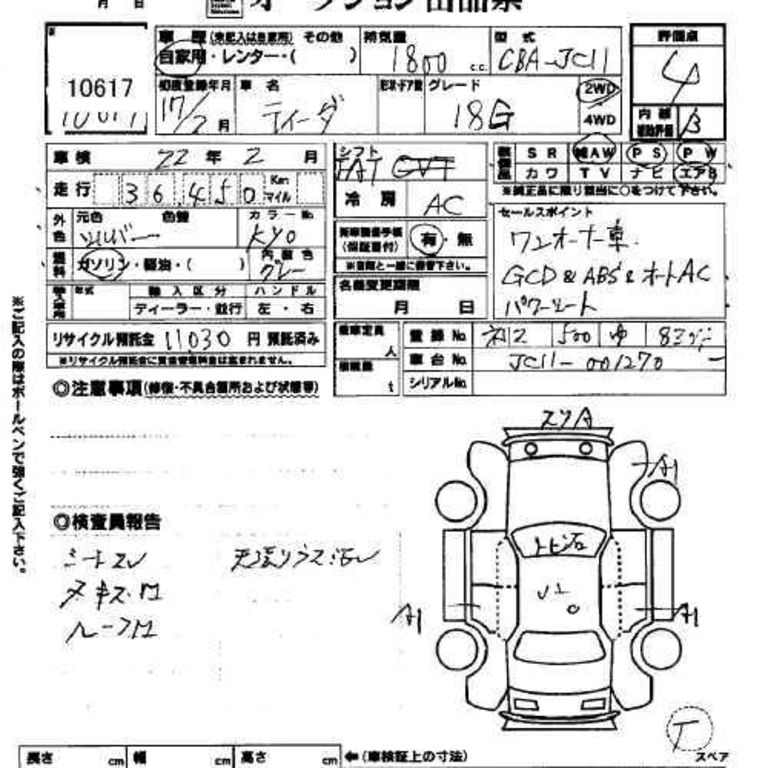 月 日 オークション出品票
10617
車歴 (未記入は自家用) その他
自家用・レンター・( )
排気量 1800 c.c.
型式 CBA-JC11
評価点 4
初度登録年月 17/2月
車名 ティーダ
形状・ドア数
グレード 18G
2WD
4WD
内装 B
車検 22年 2月
走行 36450 Km マイル
外色 元色 シルバー 色替
カラーNo. KY0
燃料 ガソリン・軽油・( )
内装色 グレー
型式
輸入区分 ディーラー・並行
ハンドル 左・右
シフト FAT
冷房 AC
(保証書付) 有・無
名義変更期限 月 日
SR 純AW PS PW
カワ TV ナビ エアB
※純正品に限り該当に○をつけて下さい。
セールスポイント
ワンオーナー車.
GCD & ABS & オートAC
パワーシート
リサイクル預託金 11030 円 預託済み
乗車定員 人
積載量 t
登録No. 500 ゆ
車台No. JC11-001270
シリアルNo.
◎注意事項(修復・不具合箇所および状態等)
※ご記入の際はボールペンで強くご記入下さい。
◎検査員報告
シートスレ
ヌキズ.M
ルーフM
A1
トビ石
A1
A1
スペア
長さ cm 幅 cm 高さ cm ←(車検証上の寸法)